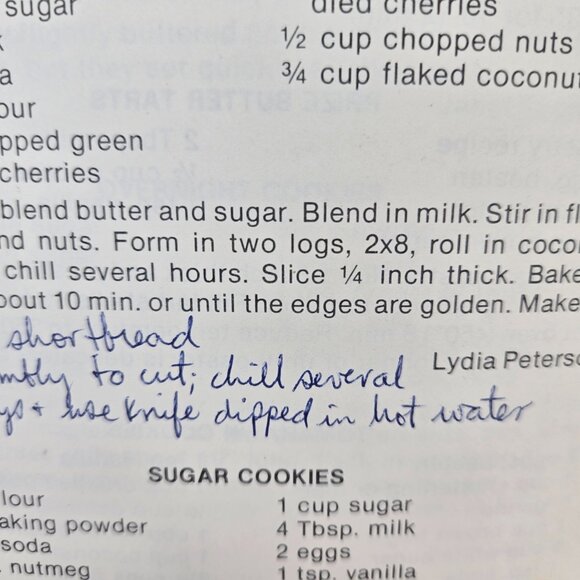 sugar
died cherries
½ cup chopped nuts
¾ cup flaked coconut
pped green
cherries
blend butter and sugar. Blend in milk. Stir in fl
nd nuts. Form in two logs, 2x8, roll in coco
chill several hours. Slice ¼ inch thick. Bake
bout 10 min. or until the edges are golden. Make
shortbread
mbly to cut; chill several
Lydia Peterso
ys + use knife dipped in hot water
SUGAR COOKIES
lour
1 cup sugar
aking powder
4 Tbsp. milk
soda
2 eggs
nutmeg
1 tsp. vanilla